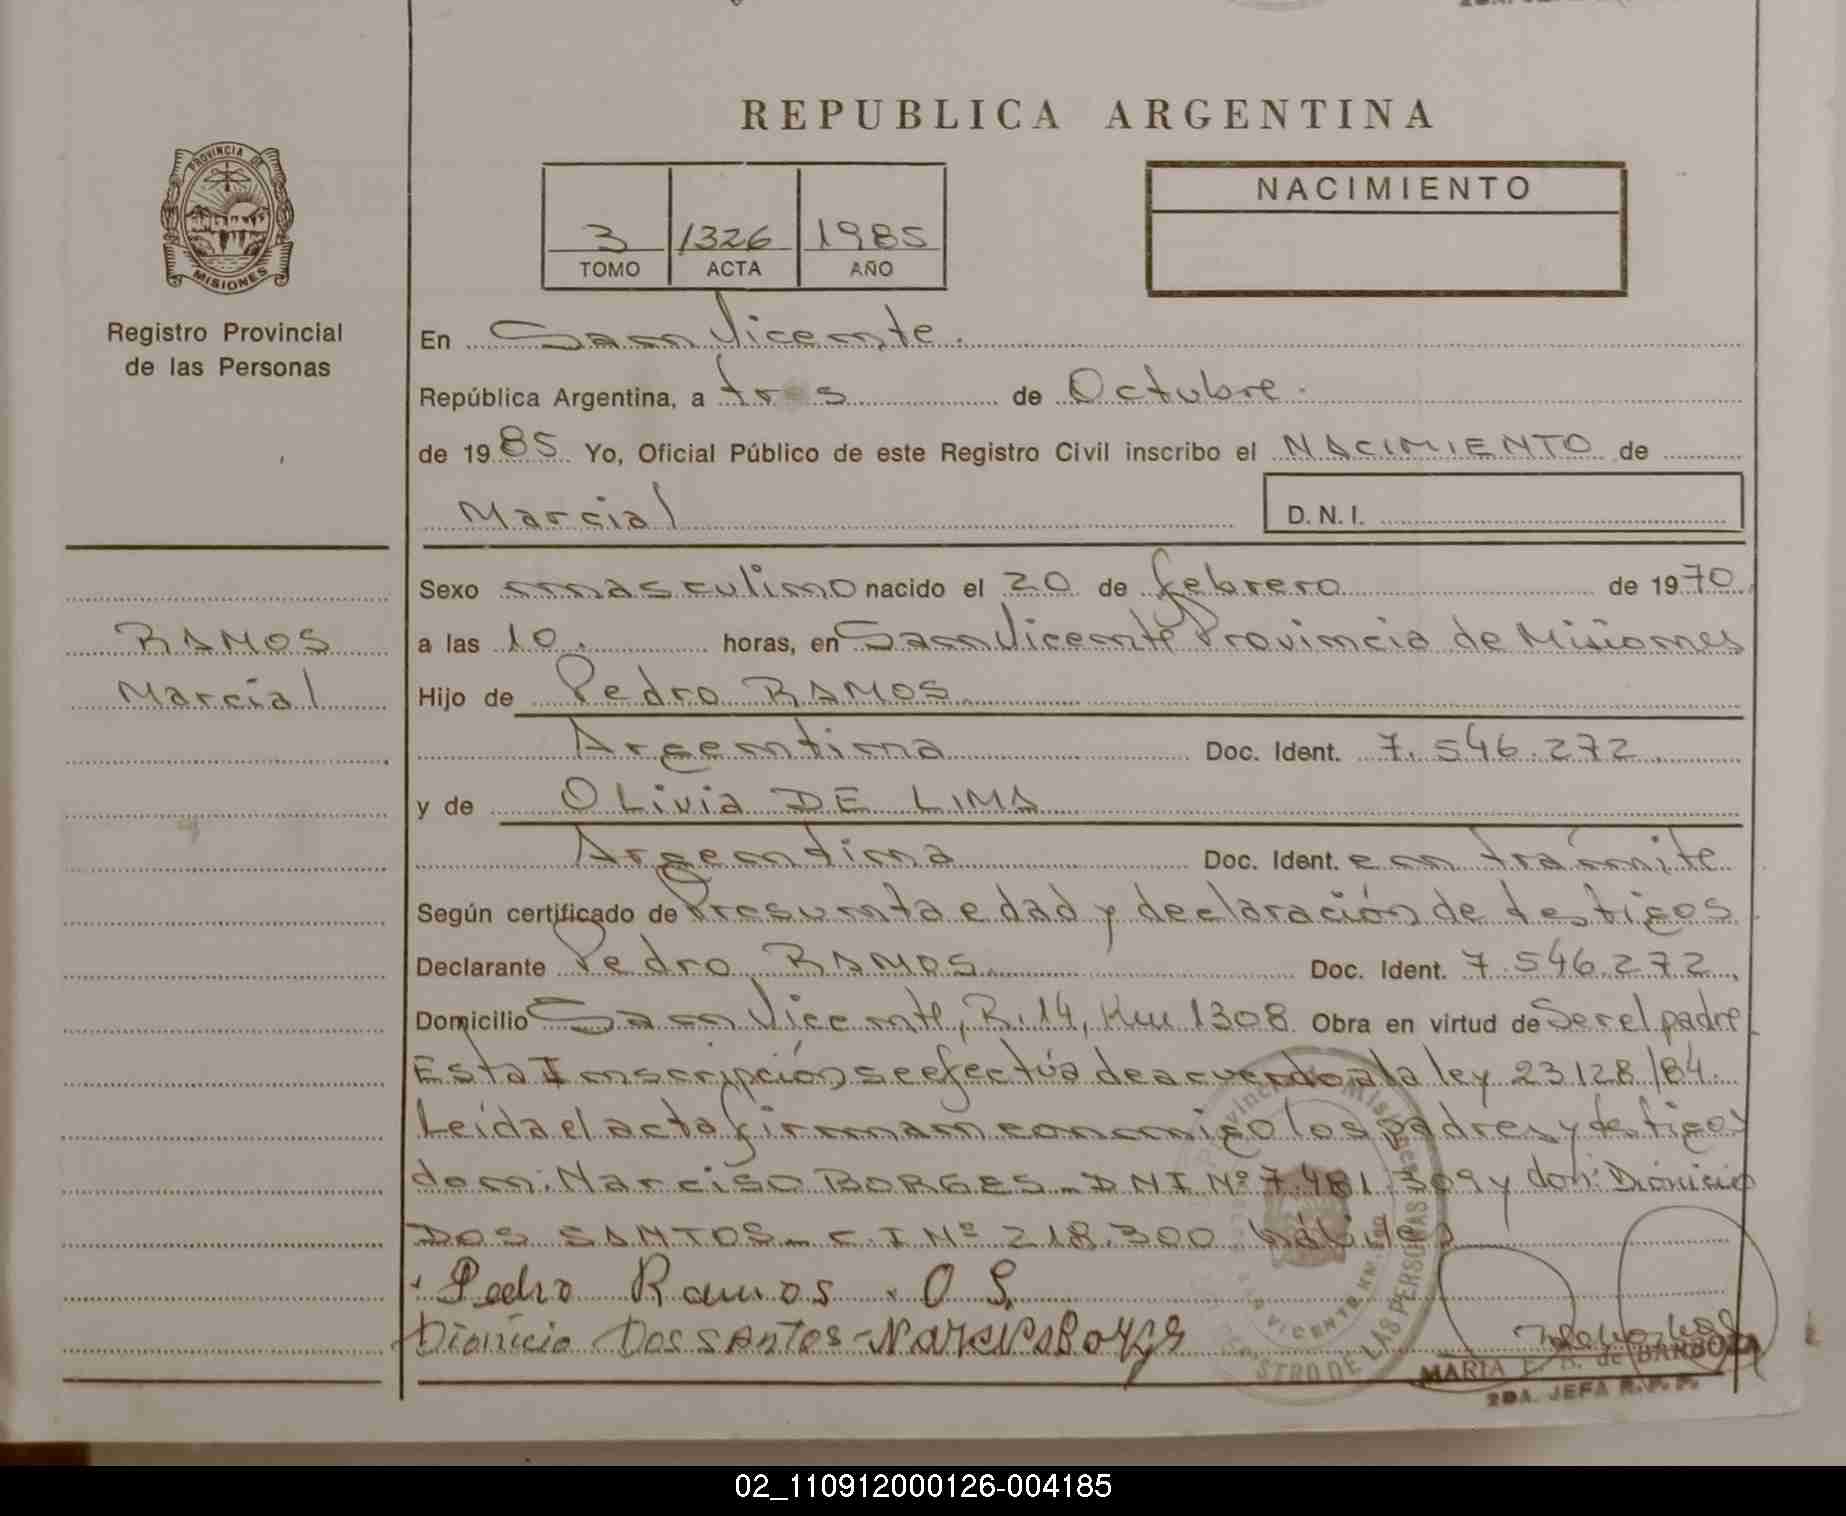 REPUBLICA ARGENTINA
PROVINCIA DE
MISIONES
Registro Provincial
de las Personas
3 1326 1985
TOMO ACTA AÑO
NACIMIENTO
En San Vicente.
República Argentina, a tr s de Octubre.
de 1985 Yo, Oficial Público de este Registro Civil inscribo el NACIMIENTO de
Marcial
D. N. I.
RAMOS
Marcial
Sexo masculino nacido el 20 de febrero de 1970
a las 10. horas, en San Vicente Provincia de Misiones
Hijo de Pedro RAMOS
Argentina Doc. Ident. 7.546.272
y de OLivia DE LIMA
Argentina Doc. Ident. en trámite
Según certificado de Presunta edad y declaración de testigos
Declarante Pedro RAMOS Doc. Ident. 7.546.272
Domicilio San Vicente, R. 14, Km 1308 Obra en virtud de Ser el padre
Esta Inscripción se efectúa de acuerdo a la ley 23.128/84.
Leída el acta firman conmigo los padres y testigos
don: Narciso BORGES - DNI Nº 7.481.309 y don: Dionicio
DOS SANTOS - C.I Nº 218.300 hábiles
Pedro Ramos . O S.
Dionicio Dos SAntos -
MARIA E. R. de BARBOZA
2DA. JEFA R.P.P.
02_110912000126-004185